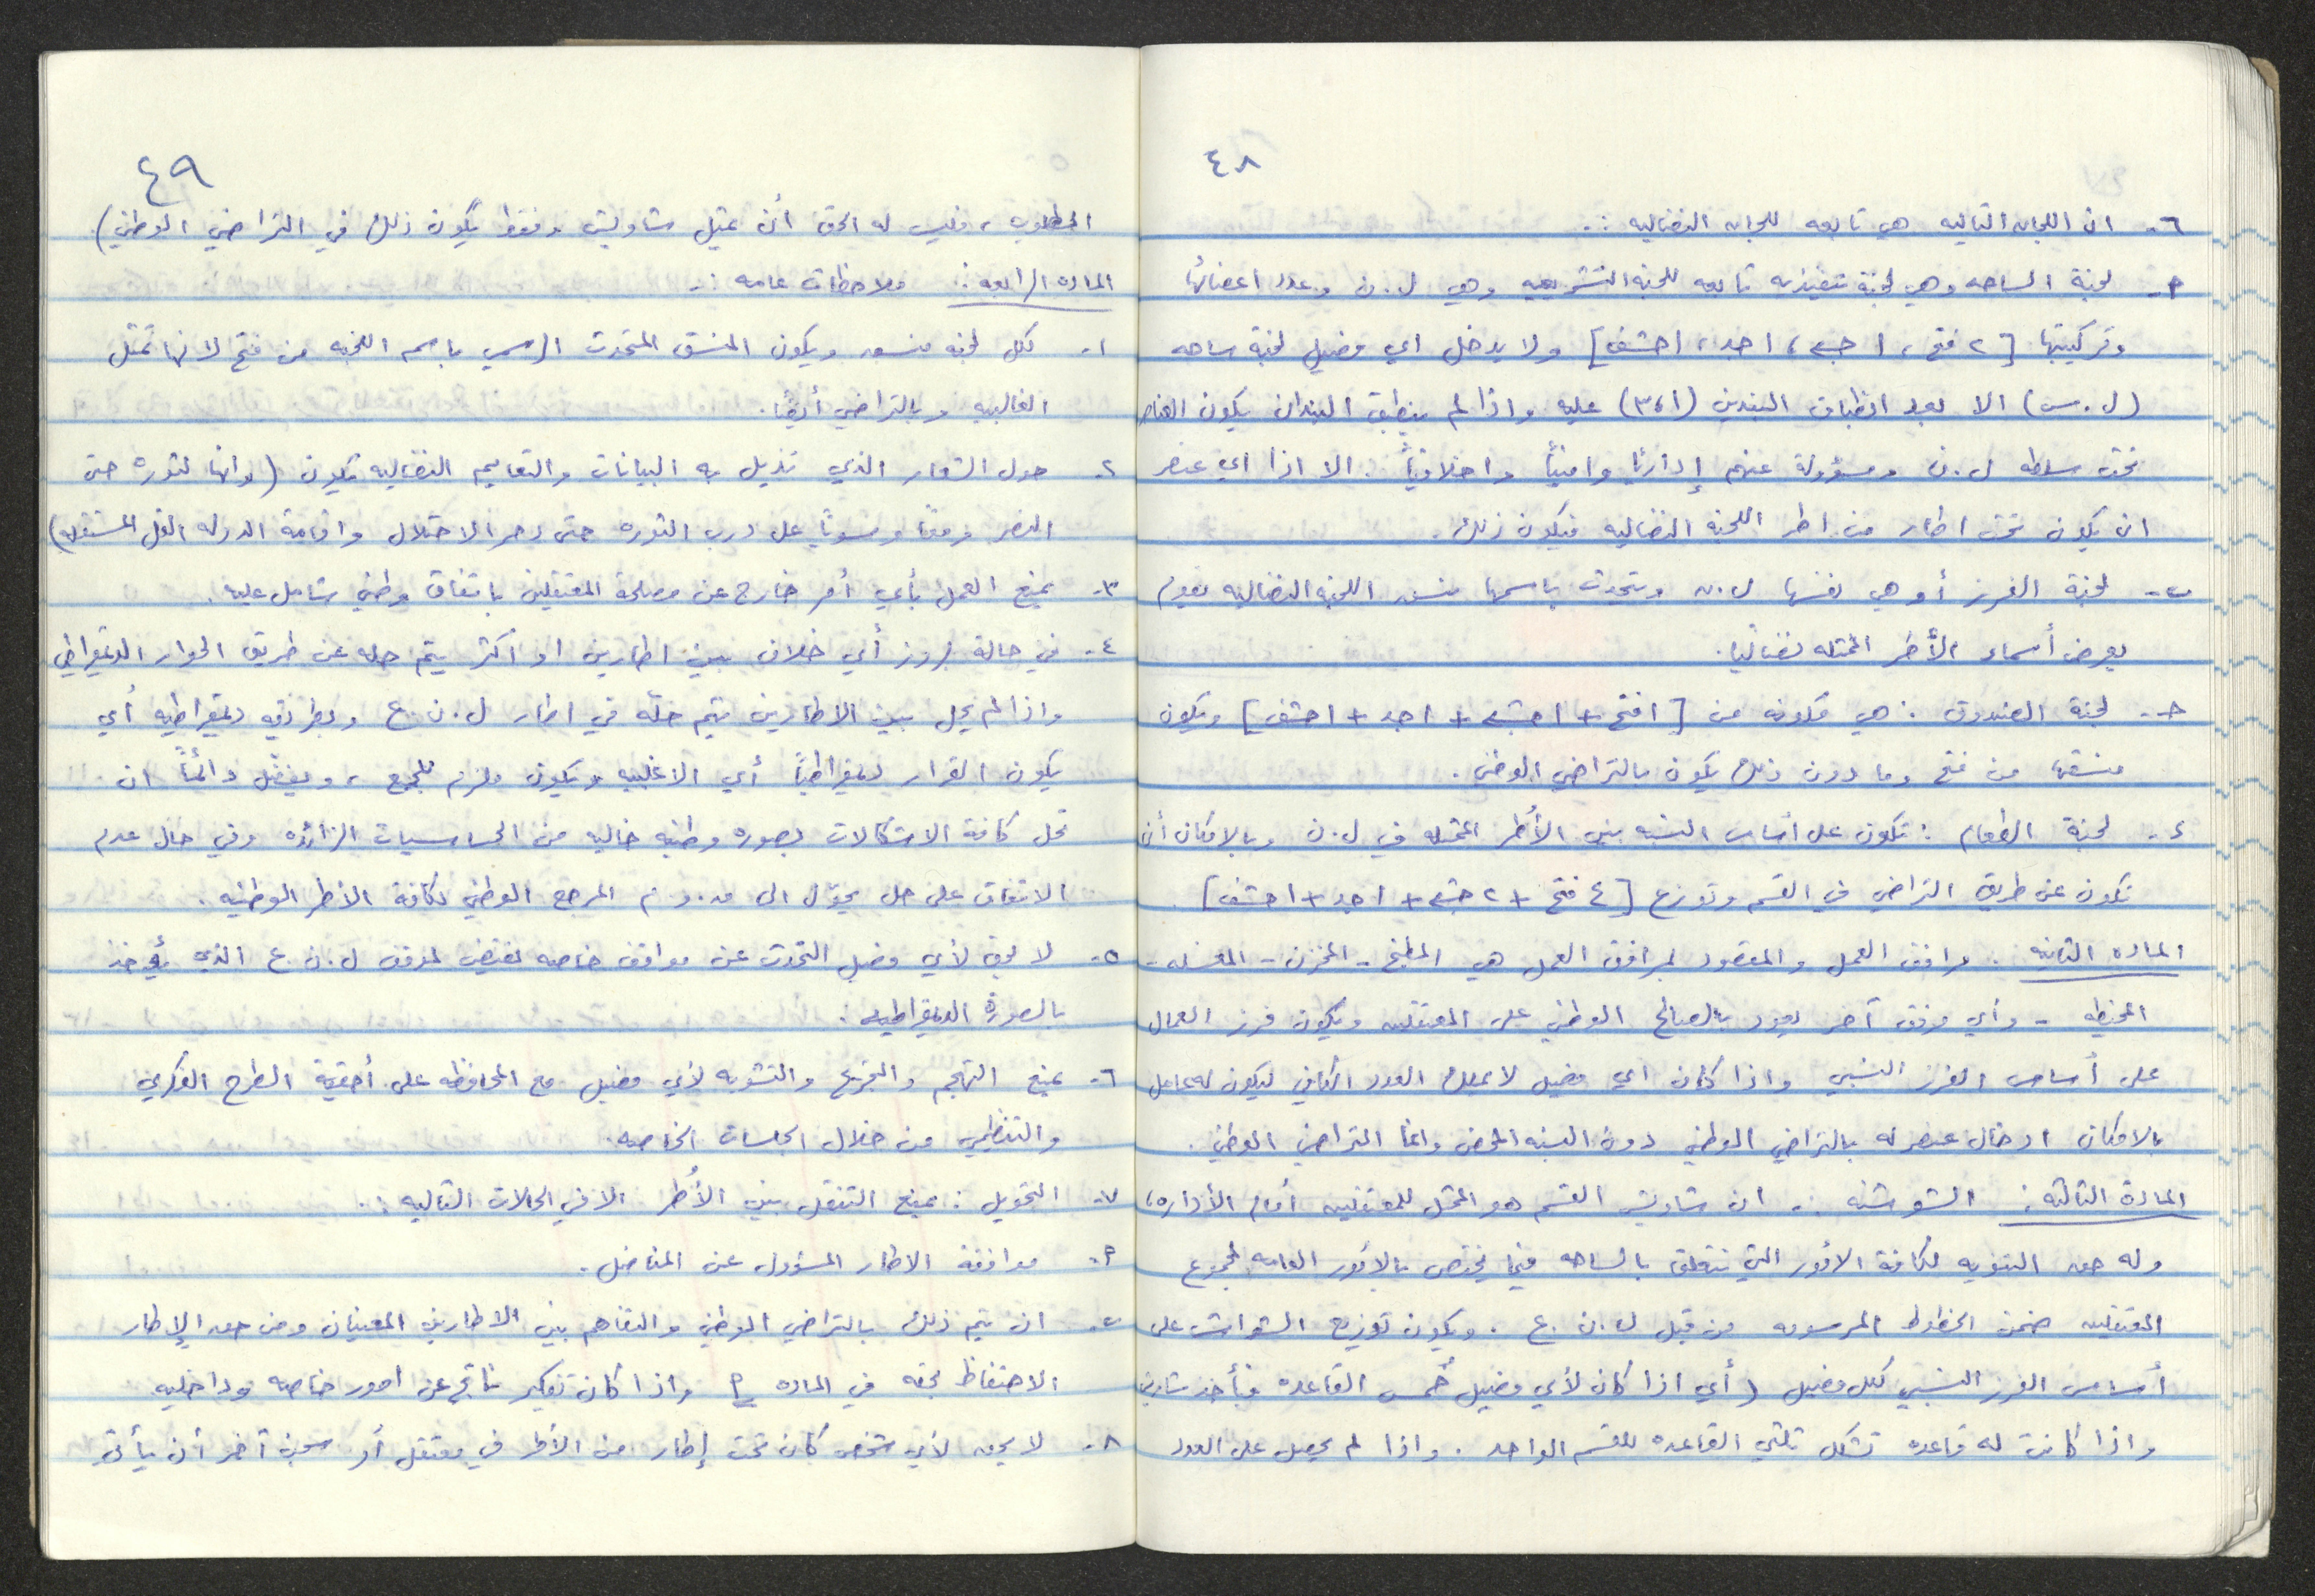 ٤٨
٦- ان اللجان التاليه هي تابعه للجان النضاليه :.
أ- لجنة الساحه وهي لجنة تنفيذيه تابعه للجنه التشريعيه وهي ل.ن وعدد اعضائها
وتركيبتها [٢ فتح ، ١ جبهه ، ١ جد ، ١ حشف] ولا يدخل اي فصيل لجنة ساحه
(ل.س) الا بعد انطباق البندين (٣،١) عليه واذا لم ينطبق البندان يكون العناصر
تحت سلطه ل.ن ومسؤولة عنهم إدارياً وامنياً واخلاقياً. الا اذا اي عنصر
ان يكون تحت اطار من اطر اللجنه النضاليه فيكون ذلك.
ب- لجنة الفرز أو هي نفسها ل.ن ويتحدث باسمها منسق اللجنه النضاليه يقوم
بعرض أسماء الأُطر الممثله نضالياً.
جـ- لجنة الصندوق : هي مكونه من [١ فتح + ١ جبهه + ١ جد + ١ حشف] ويكون
منسقها من فتح وما دون ذلك يكون بالتراضي الوطني.
د- لجنة الطعام : تكون على أساس النسبه بين الأُطر الممثله في ل.ن وبالإمكان أن
تكون عن طريق التراضي في القسم وتوزع [٤ فتح + ٢ جبهه + ١ جد + ١ حشف].
الماده الثانيه : مرافق العمل والمقصود بمرافق العمل هي المطبخ - المخزن - المغسله -
المخيطه - وأي مرفق آخر يعود بالصالح الوطني على المعتقلين ويكون فرز العمال
على أساس الفرز النسبي واذا كان اي فصيل لا يملك العدد الكافي ليكون له عامل
بالامكان ادخال عنصر له بالتراضي الوطني دون النسبه المحض وانما التراضي الوطني.
المادة الثالثه : الشوشنه :. ان شاويش القسم هو الممثل للمعتقلين أمام الأداره،
وله حق التنويه لكافة الأمور التي تتعلق بالساحه فيما يختص بالأمور العامه لمجموع
المعتقلين ضمن الخطوط المرسومه من قبل ل.ن.ع . ويكون توزيع الشواش على
أساس الفرز النسبي لكل فصيل (أي اذا كان لأي فصيل خُمس القاعده فيأخذ شاويش
واذا كانت له قاعده تشكل ثلثي القاعده للقسم الواحد . واذا لم يحصل على العدد
٤٩
المطلوب ، فليس له الحق أن يمثل شاويش وفقط يكون ذلك في التراضي الوطني)
الماده الرابعه : ملاحظات عامه :.
١- لكل لجنه منسق ويكون المنسق المتحدث الرسمي باسم اللجنه من فتح لانها تمثل
الغالبيه وبالتراضي أيضاً.
٢- حول الشعار الذي تذيل به البيانات والتعاميم النضاليه تكون (وانها لثوره حتى
النصر ومعاً وسوياً على درب الثوره حتى دحر الاحتلال واقامة الدوله المستقله)
٣- يمنع العمل بأي أمر خارج عن مصلحة المعتقلين باتفاق وطني شامل عليه.
٤- في حالة بروز أي خلاف بين اطارين او اكثر يتم حله عن طريق الحوار الديمقراطي
واذا لم يحل بين الاطارين يتم حلّه في اطار ل.ن.ع وبطريقه ديمقراطيه أي
يكون القرار ديمقراطياً أي الاغلبيه ويكون ملزم للجميع ، ويفضل دائماً ان
تحل كافة الاشكالات بصوره وطنيه خاليه من الحساسيات الزائده وفي حال عدم
الاتفاق على حل يحوّل الى م.و.م المرجع الوطني لكافة الأطر الوطنيه.
٥- لا يحق لأي فصيل التحدث عن مواقف خاصه نقيض لموقف ل.ن.ع الذي يؤخذ
بالصورة الديمقراطيه.
٦- يمنع التهجم والتجريح والتشويه لأي فصيل مع المحافظه على أحقية الطرح الفكري
والتنظيمي من خلال الجلسات الخاصه.
٧- التحويل : يمنع التنقل بين الأُطر الا في الحالات التاليه :.
أ- موافقة الاطار المسؤول عن المناضل.
ب- ان يتم ذلك بالتراضي الوطني والتفاهم بين الاطارين المعنيان ومن حق الإطار
الاحتفاظ بحقه في الماده أ واذا كان تفكير ناتج عن امور خاصه وداخليه
٨- لا يحق لأي شخص كان تحت إطار من الأطر في معتقل أو سجن آخر أن يأتي